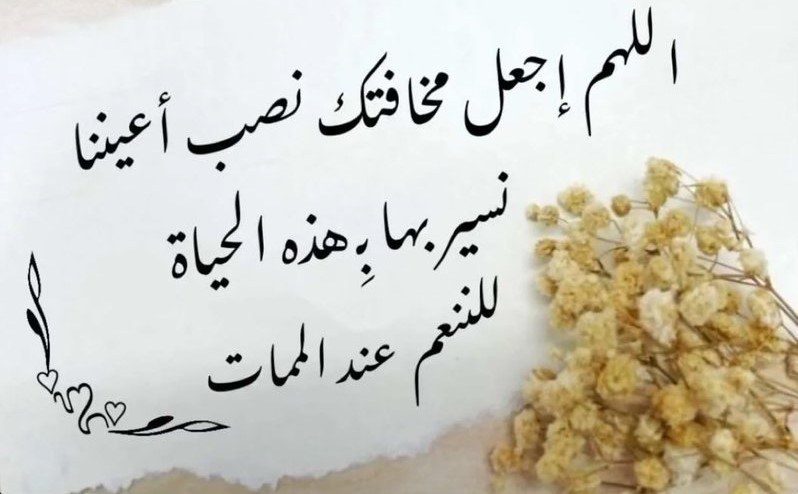 اللهم إجعل مخافتك نصب أعيننا
نسير بها بِهذه الحياة
للننعم عند الممات